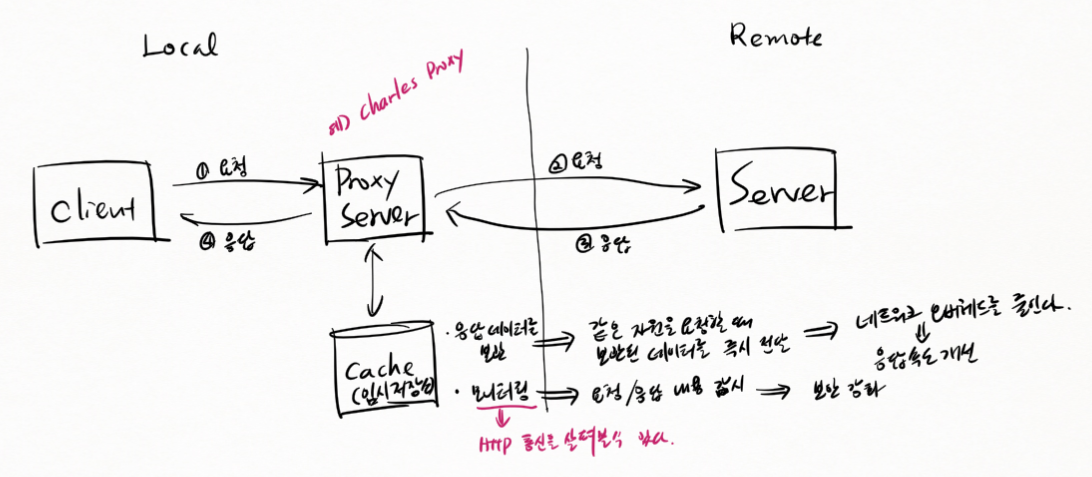 Local
Remote
예) Charles Proxy
① 요청
② 요청
Client
Proxy
Server
Server
④ 응답
③ 응답
Cache
(임시저장소)
· 응답 데이터를
보관
같은 자원을 요청할 때
보관된 데이터를 즉시 전달
네트워크 오버헤드를 줄인다.
응답속도 개선
· 모니터링
요청/응답 내용 감시
보안 강화
HTTP 통신을 살펴볼 수 있다.